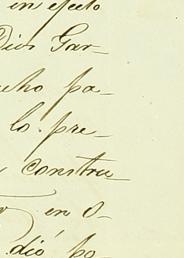 en efecto
Dios Gar-
cho pa-
lo pre-
constru
en O-
dió po-